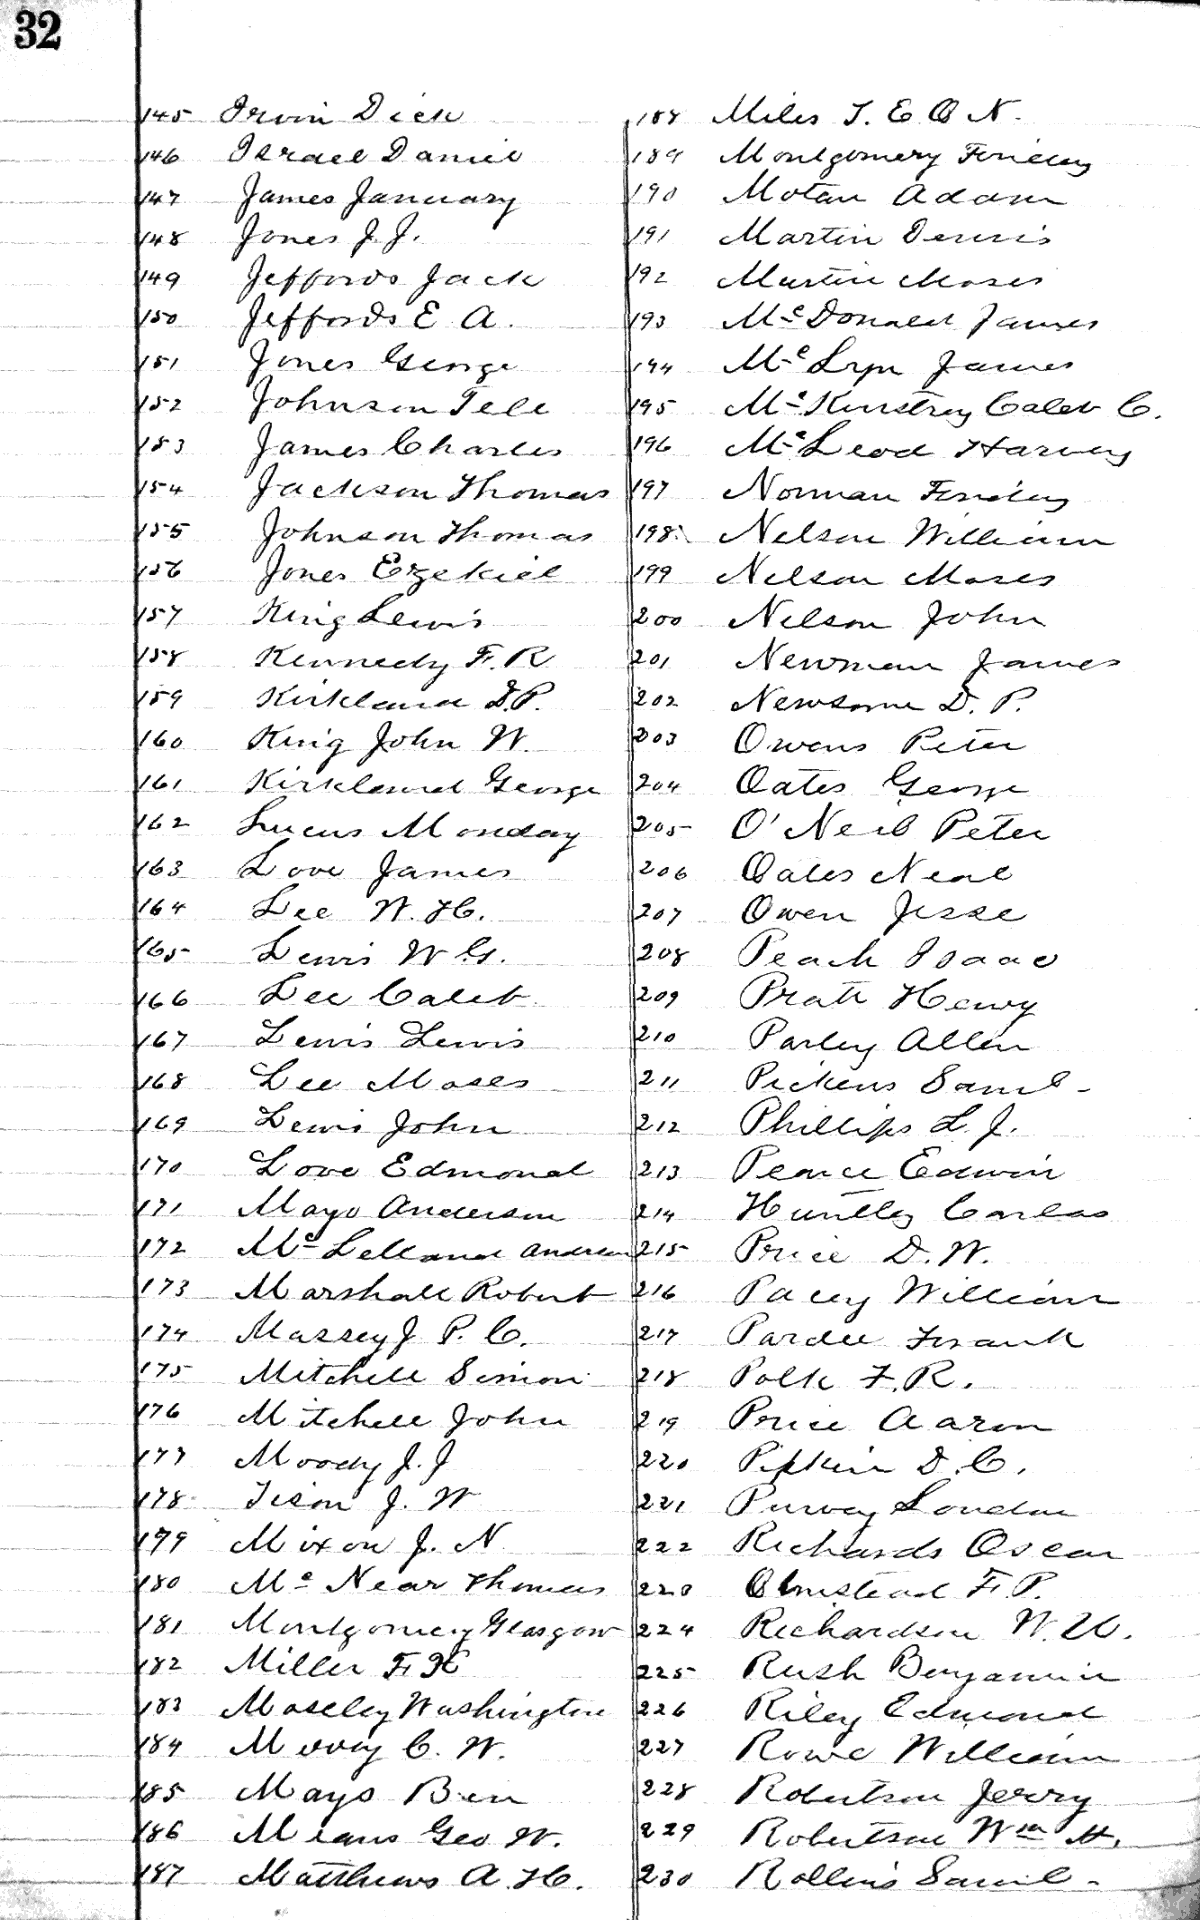 32
145 Irvin Dick
146 Israel Daniel
147 James January
148 Jones J. J.
149 Jeffords Jack
150 Jeffords E A.
151 Jones George
152 Johnson Tell
153 James Charles
154 Jackson Thomas
155 Johnson Thomas
156 Jones Ezekiel
157 King Lewis
158 Kennedy F. R
159 Kirkland D.P.
160 King John W.
161 Kirkland George
162 Lucus Monday
163 Love James
164 Lee W. H.
165 Lewis W G.
166 Lee Caleb
167 Lewis Lewis
168 Lee Moses
169 Lewis John
170 Love Edmond
171 Mayo Anderson
172 Mc Lelland Andrew
173 Marshall Robert
174 Massey J P. C.
175 Mitchell Simon
176 Mitchell John
177 Moody J. J
178 Tison J. W
179 Mixon J. N
180 Mc Near Thomas
181 Montgomery Glasgow
182 Miller F. H
183 Moseley Washington
184 C. W.
185 Mays Ben
186 Means Geo W.
187 Matthews A. H.
188 Miles T. E O N.
189 Montgomery Finley
190 Motan Adam
191 Martin Dennis
192 Martin Moses
193 Mc Donald James
194 Mc James
195 Mc Kinstrey Caleb C.
196 Mc Leod Harvey
197 Norman Finley
198 Nelson William
199 Nelson Moses
200 Nelson John
201 Newman James
202 Newsome D. P.
203 Owens Peter
204 Oates George
205 O'Neil Peter
206 Oates Neal
207 Owen Jesse
208 Peach Isaac
209 Pratt Henry
210 Parley Allen
211 Pickens Saml-
212 Phillips L. J.
213 Pearce Edwin
214 Huntley Carlas
215 Price D. W.
216 Pacey William
217 Pardee Frank
218 Polk F. R.
219 Price Aaron
220 Pipkin D. C.
221 Purvey London
222 Richards Oscar
223 Olmstead F. P.
224 Richardson W. U.
225 Rush Benjamin
226 Riley Edmond
227 Rowe William
228 Robertson Jerry
229 Robertson Wm H.
230 Rollins Saml-